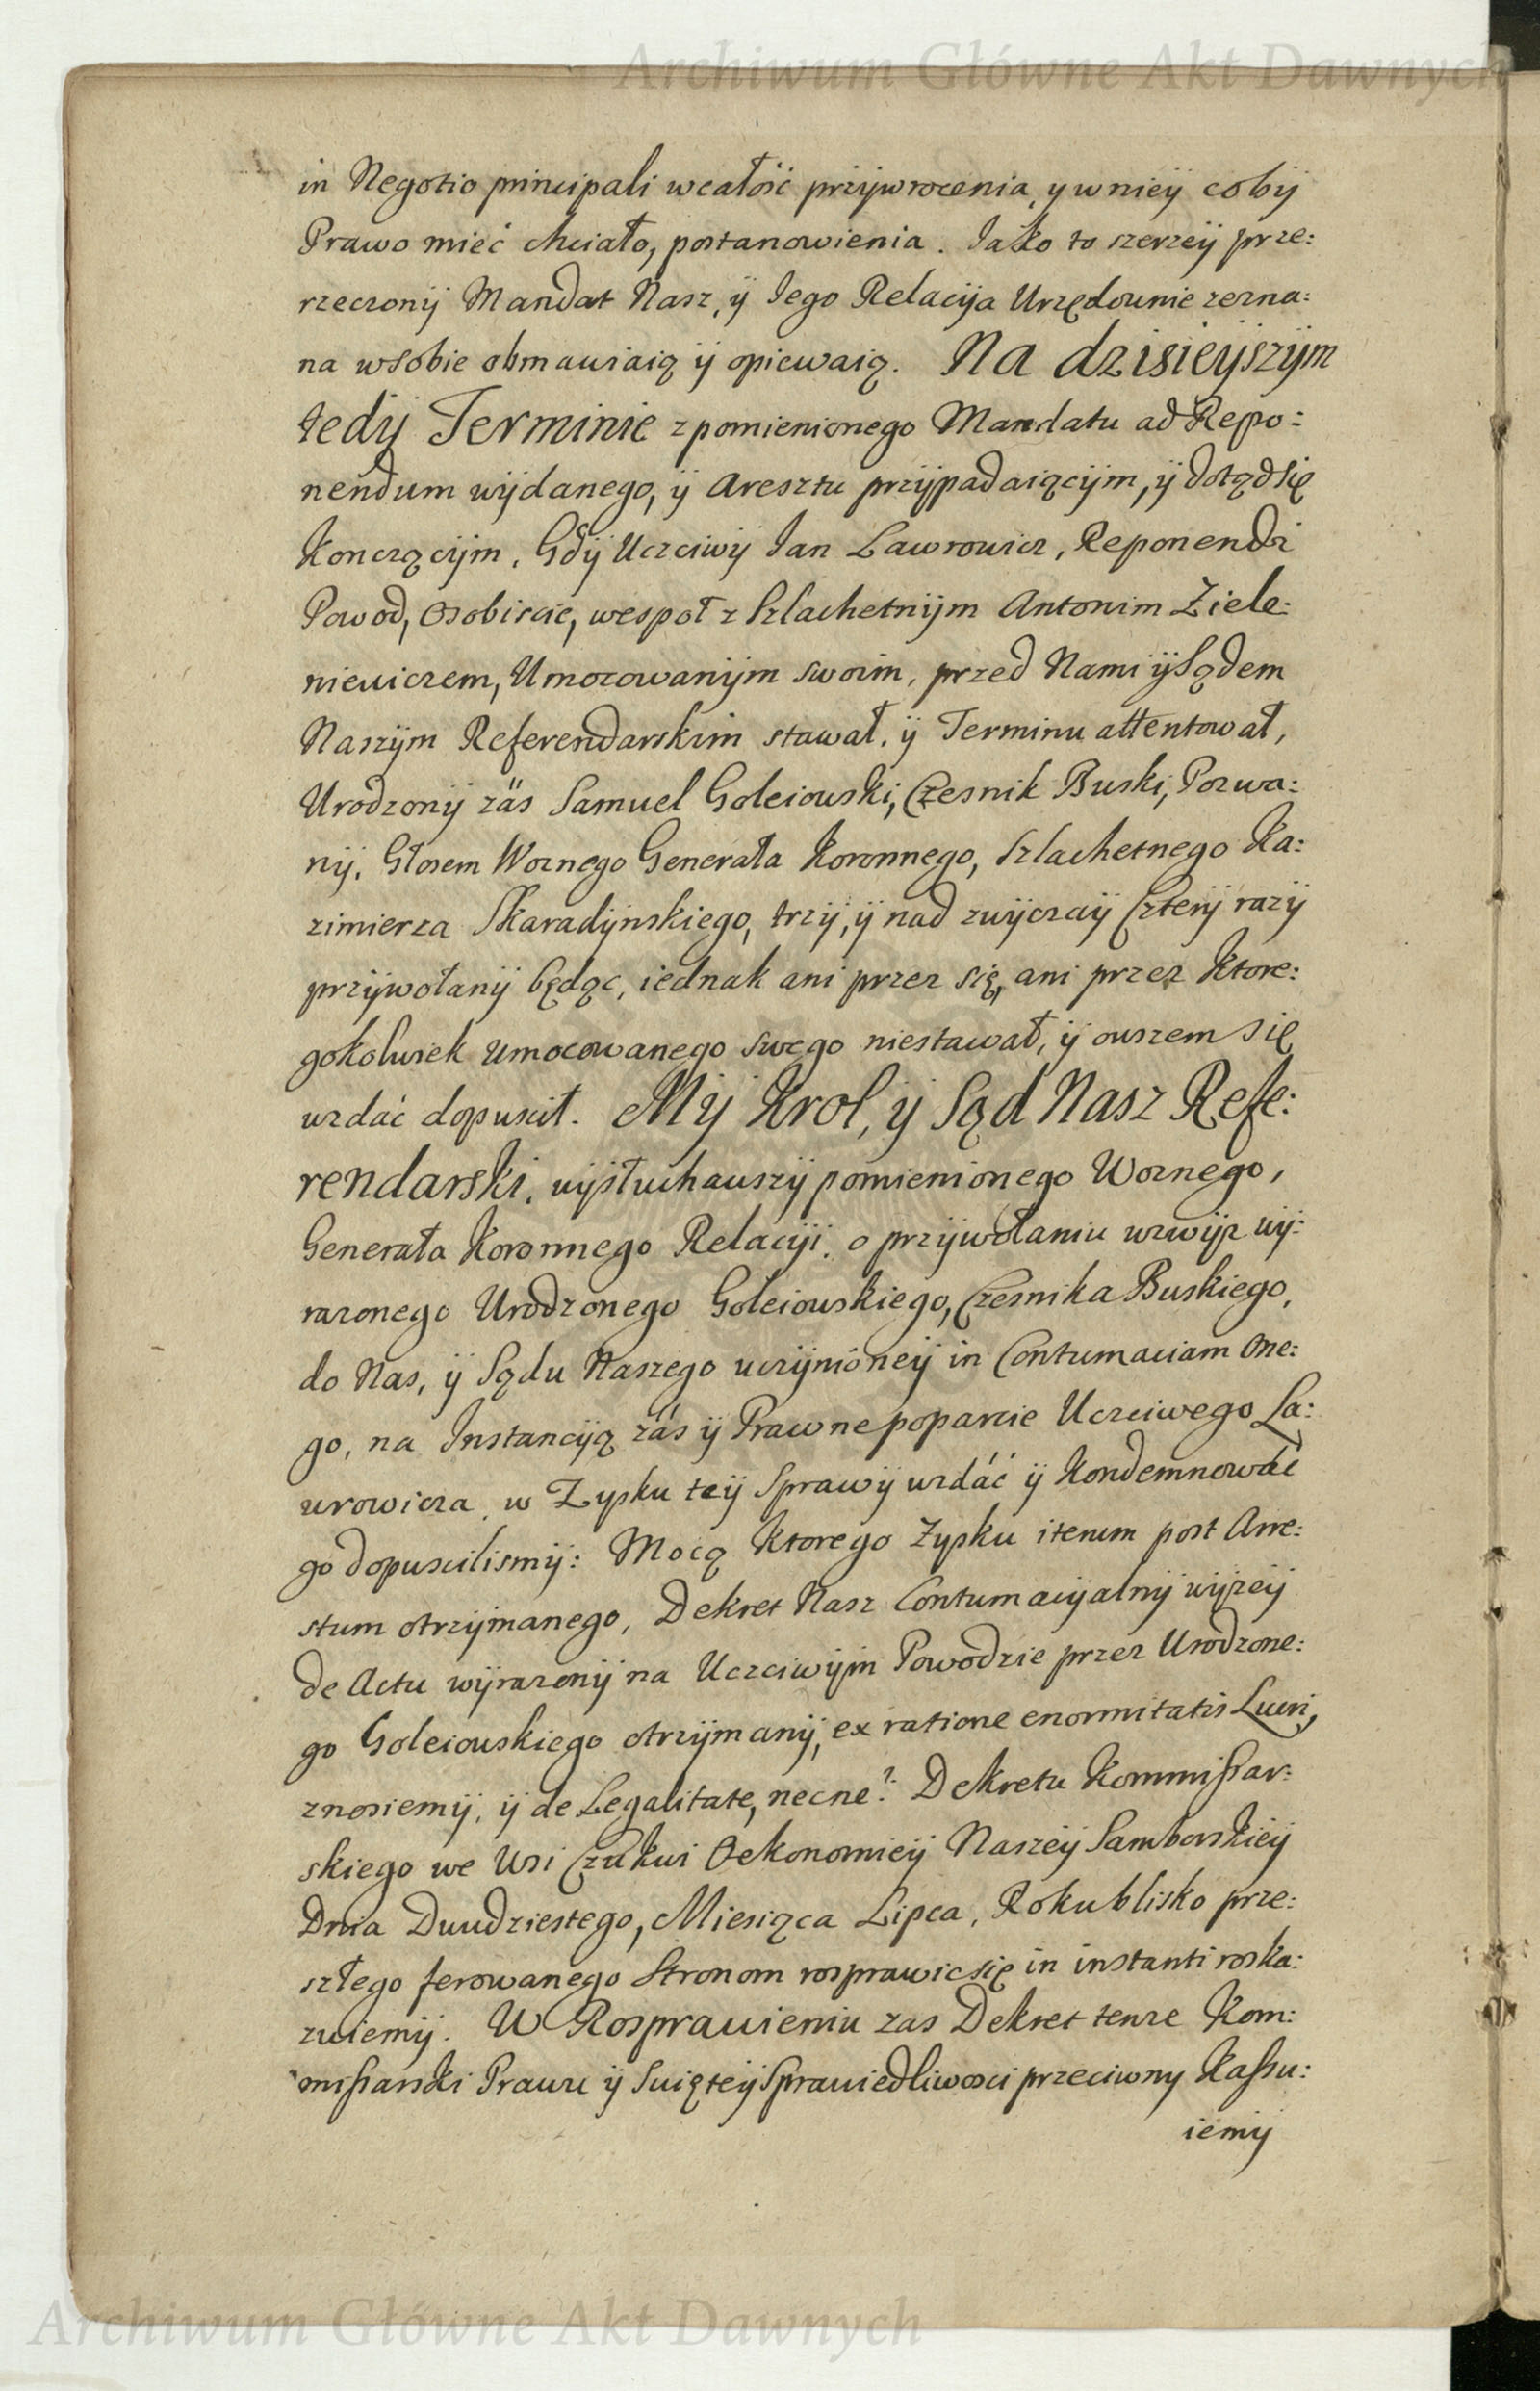 Archiwum Główne Akt Dawnych
in Negotio principali wcałość przÿwrocenia, y w nieÿ cobÿ
Prawo mieć chciało, postanowienia. Iako to szerzeÿ prze:
rzeczonÿ Mandat Nasz, ÿ Iego Relacÿa Urzędownie zezna:
na wSobie obmawiaią ÿ opiewaią. Na dzisieÿszÿm
tedÿ Terminie z pomienionego Mandatu ad Repo:
nendum wÿdanego, ÿ Aresztu przÿpadaiącÿm, ÿ dotąd się
Konczącÿm, Gdÿ Uczciwÿ Ian Lawrowicz, Reponendi
Powod, Osobiscie, wespoł z Szlachetnÿm Antonim Ziele:
niewiczem, Umocowanÿm swoim, przed Nami ÿ Sądem
Naszÿm Referendarskim stawał, ÿ Terminu attentował,
Urodzonÿ zäs Samuel Goleiowski, Czesnik Buski, Pozwa:
nÿ, Głosem Woznego Generała Koronnego, Szlachetnego Ka:
zimierza Skaradÿnskiego, trzÿ, ÿ nad zwÿczaÿ Czterÿ razÿ
przÿwołanÿ będąc, iednak ani przez się, ani przez Ktore:
gokolwiek Umocowanego swego niestawał, ÿ owszem się
wzdać dopuscił. Mÿ Krol, ÿ Sąd Nasz Refe:
rendarski, wÿsłuchawszÿ pomienionego Woznego,
Generała Koronnego Relacÿi, o przÿwołaniu wzwÿz wÿ:
razonego Urodzonego Goleiowskiego, Czesnika Buskiego,
do Nas, ÿ Sądu Naszego uczÿnioneÿ in Contumaciam One:
go, na Instancÿą zás ÿ Prawne poparcie Uczciwego La:
wrowicza, w Zysku teÿ Sprawÿ wzdáć ÿ Kondemnowáć
go dopuscilismÿ: Mocą Ktorego Zysku iterum post Arre:
stum otrzÿmanego, Dekret Nasz Contumacÿalnÿ wÿzeÿ
de Actu wÿrazonÿ na Uczciwÿm Powodzie przez Urodzone:
go Goleiowskiego otrzÿmanÿ, ex ratione enormitatis Lucri,
znosiemÿ, ÿ de Legalitate, necne?: Dekretu Kommissar:
skiego we Wsi Czukwi Oekonomieÿ Naszeÿ Samborskieÿ
Dnia Dwudziestego, Miesiąca Lipca, Roku blisko prze:
szłego ferowanego Stronom rosprawic się in instanti roska:
zuiemÿ. W Rosprawieniu zas Dekret tenze Kom:
missarski Prawu ÿ Swięteÿ Sprawiedliwosci przeciwny Kassu:
iemÿ
Archiwum Główne Akt Dawnych